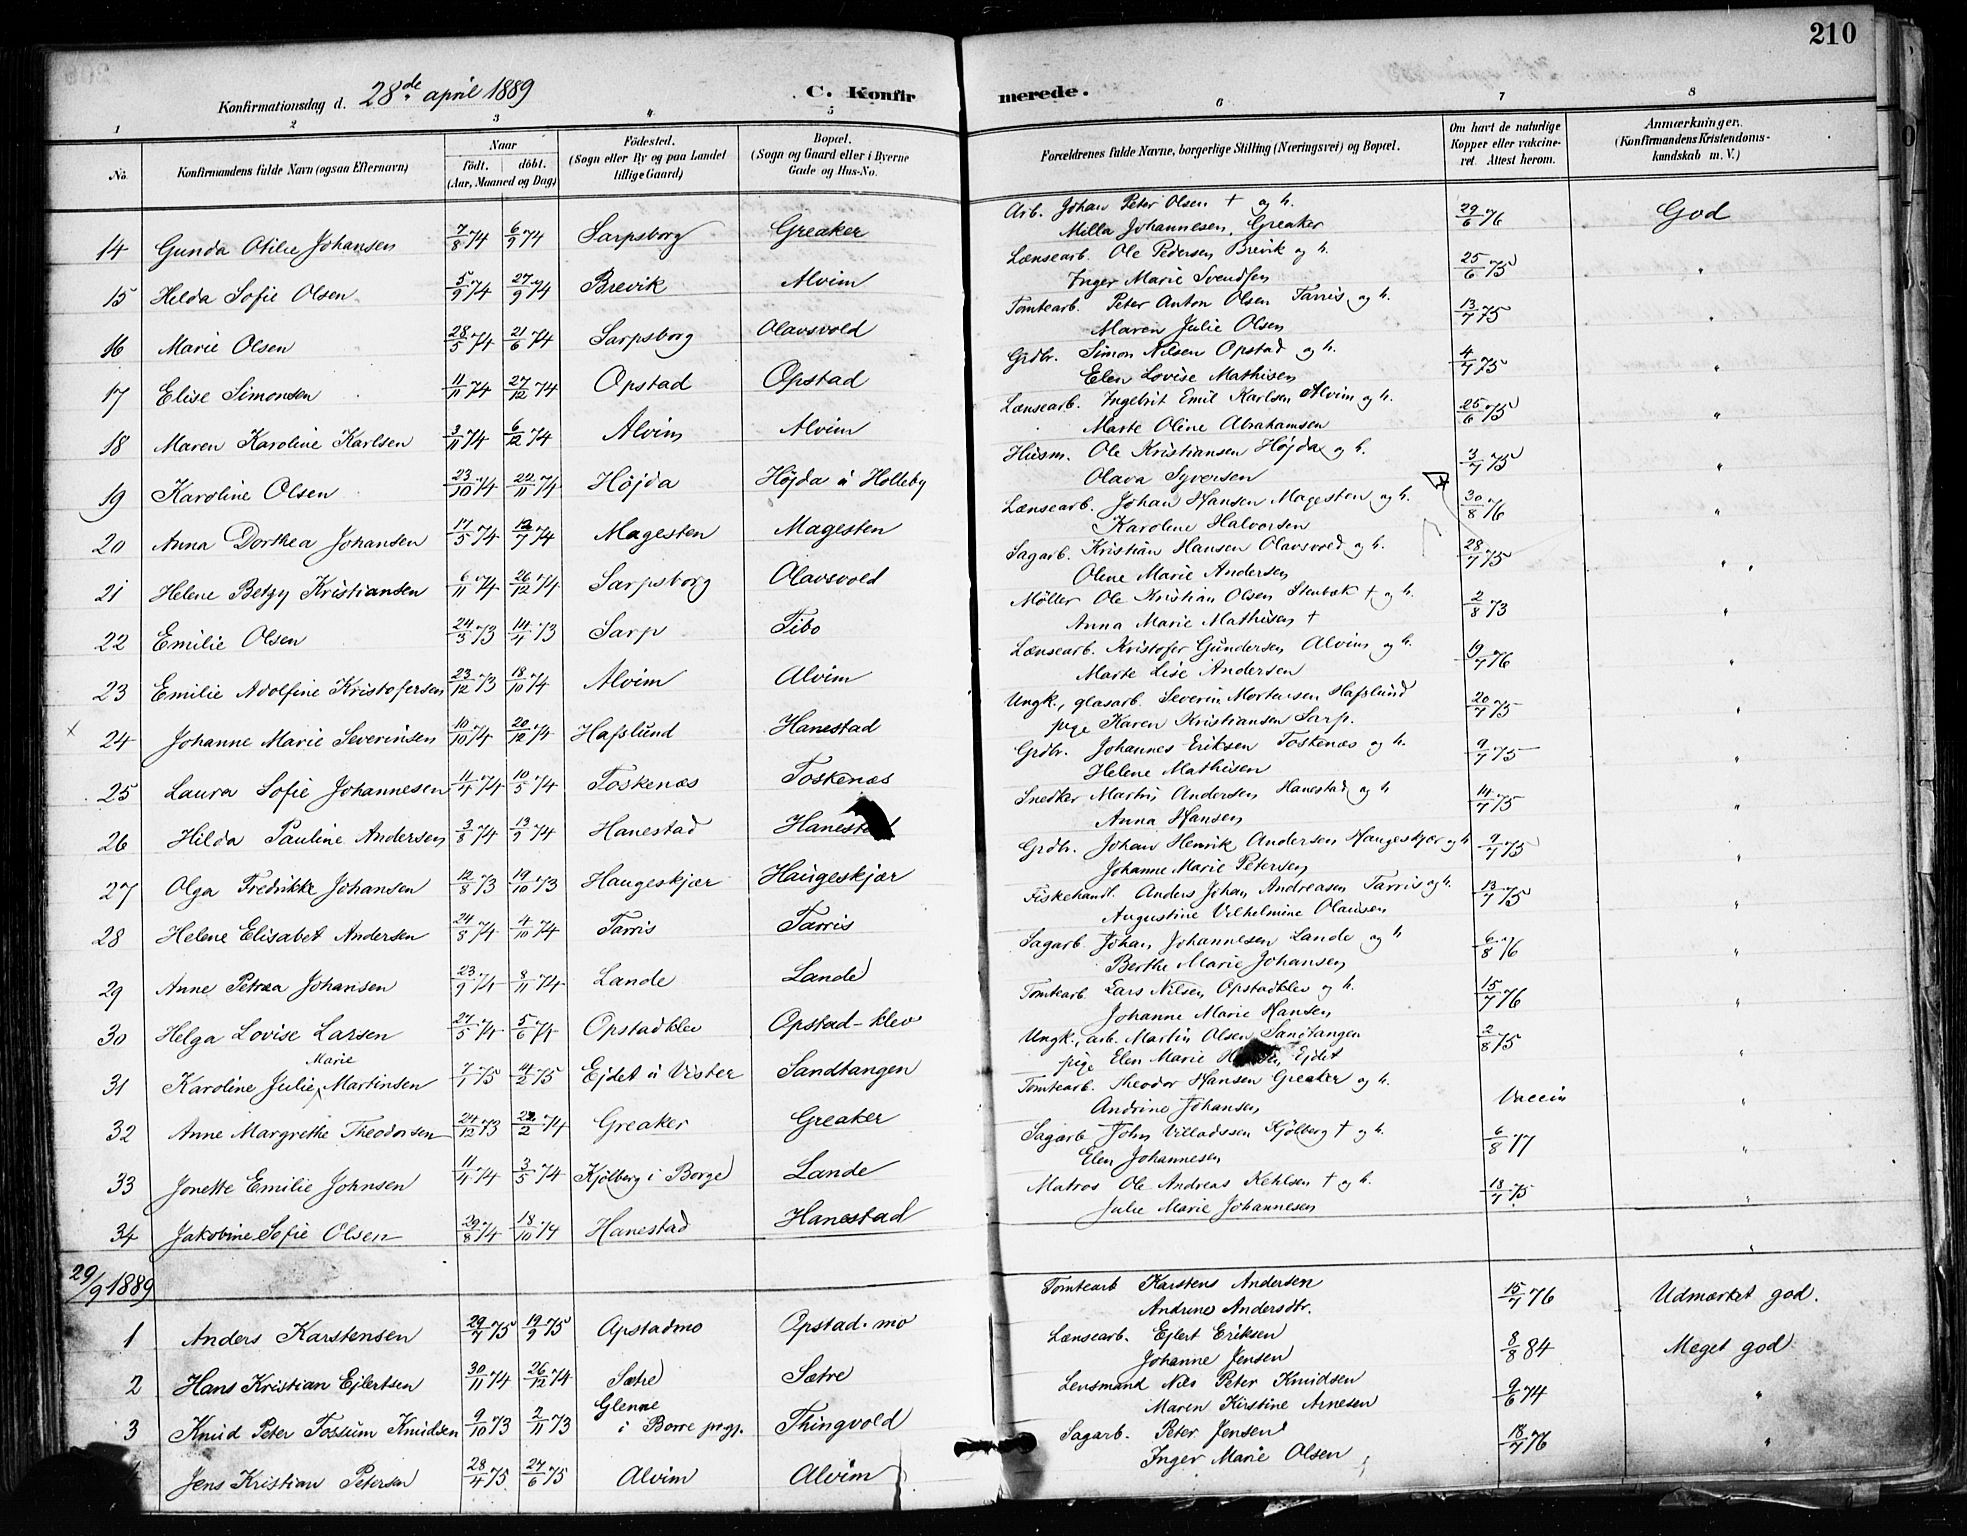 210
Konfirmationsdag d. 28de april 1889 C. Konfirmerede.
1 2 3 4 5 6 7 8
No. Konfirmandens fulde Navn (ogsaa Efternavn) Naar født. døbt. (Aar, Maaned og Dag) Fødested. (Sogn eller By og paa Landet tillige Gaard) Bopæl. (Sogn og Gaard eller i Byerne Gade og Hus-No. Forældrenes fulde Navne, borgerlige Stilling (Næringsvei) og Bopæl. Om havt de naturlige Kopper eller vakcineret. Attest herom. Anmærkninger. (Konfirmandens Kristendomskundskab m. V.)
14 Gunda Otilie Johansen 7/8 74 6/9 74 Sarpsborg Greaker Arb. Johan Peter Olsen † og h. 29/6 76 God
Milla Johannesen, Greaker
15 Hilda Sofie Olsen 5/9 74 27/9 74 Brevik Alvim Lænsearb. Ole Pedersen Brevik og h. 25/6 75 "
Inger Marie Svendsen
16 Marie Olsen 28/5 74 21/6 74 Sarpsborg Olavsvold Tomtearb. Peter Anton Olsen Tarris og h. 13/7 75 "
Maren Julie Olsen
17 Elise Simonsen 11/11 74 27/12 74 Opstad Opstad Grdbr. Simon Nilsen Opstad og h. 4/7 75 "
Elen Lovise Mathisen
18 Maren Karoline Karlsen 3/11 74 6/12 74 Alvim Alvim Lænsearb. Ingebrit Emil Karlsen Alvim og h. 25/6 75 "
Marte Oline Abrahamsen
19 Karoline Olsen 23/10 74 22/11 74 Höjda Höjda u Holleby Husm. Ole Kristiansen Höjda og h. 3/7 75 "
Olava Syversen
20 Anna Dorthea Johansen 17/5 74 12/7 74 Magesten Magesten Lænsearb. Johan Hansen Magesten og h. 30/8 76 "
Karoline Halvorsen
21 Helene Betzy Kristiansen 6/11 74 26/12 74 Sarpsborg Olavsvold Sagarb. Kristian Hansen Olavsvold og h. 28/7 75 "
Oline Marie Andersen
22 Emilie Olsen 24/3 73 14/4 73 Sarp Tibo Møller Ole Kristian Olsen Stenbæk † og h. 2/8 73 "
Anna Marie Mathisen †
23 Emilie Adolfine Kristofersen 23/12 73 18/10 74 Alvim Alvim Lænsearb. Kristofer Gundersen Alvim og h. 19/7 76 "
Marte Lise Andersen
24 Johanne Marie Severinsen 10/10 74 20/12 74 Hafslund Hanestad Ungk., glasarb. Severin Mortensen Hafslund 20/7 75 "
pige Karen Kristiansen Sarp.
25 Laura Sofie Johannesen 11/4 74 10/5 74 Toskenæs Toskenæs Grdbr. Johannes Eriksen Toskenæs og h. 9/7 75 "
Helene Mathisen
26 Hilda Pauline Andersen 3/8 74 13/9 74 Hanestad Hanestad Snedker Martin Andersen Hanestad og h 14/7 75 "
Anna Hansen
27 Olga Fredrikke Johansen 12/8 73 19/10 73 Haugeskjær Haugeskjær Grdbr. Johan Henrik Andersen Haugeskjær og h 9/7 75 "
Johanne Marie Petersen
28 Helene Elisabet Andersen 24/8 74 4/10 74 Tarris Tarris Fiskehandl. Anders Johan Andreasen Tarris og h. 13/7 75 "
Augustine Vilhelmine Olausen
29 Anne Petrea Johansen 23/9 74 8/11 74 Lande Lande Sagarb. Johan Johannesen Lande og h 6/8 76 "
Berthe Marie Johansen
30 Helga Lovise Larsen 27/5 74 5/6 74 Opstadklev Opstad-klev Tomtearb. Lars Nilsen Opstadklev og h. 15/7 76 "
Johanne Marie Hansen
31 Karoline Julie Marie Martinsen 7/1 75 14/2 75 Ejdet u Vister Sandtangen Ungk., arb. Martin Olsen Sandtangen 2/8 75 "
pige Elen Marie Ejdet
32 Anne Margrethe Theodorsen 24/12 73 22/2 74 Greaker Greaker Tomtearb. Theodor Hansen Greaker og h. Vaccin "
Andrine Johansen
33 Jonette Emilie Johnsen 11/4 74 3/5 74 Kjölberg i Borge Lande Sagarb. John Villadssen Kjölberg † og h. 6/8 77 "
Elen Johannesen
34 Jakobine Sofie Olsen 29/8 74 18/10 74 Hanestad Hanestad Matros Ole Andreas Kehlsen † og h. 18/7 75 "
Julie Marie Johannesen
29/9 1889
1 Anders Karstensen 29/7 75 19/9 75 Opstadmo Opstad-mo Tomtearb Karstens Andersen 15/7 76 Udmærket god.
Andrine Andersdtr.
2 Hans Kristian Ejlertsen 30/11 74 26/12 74 Sætre Sætre Lænsearb. Ejlert Eriksen 8/8 84 Meget god
Johanne Jensen
3 Knud Peter Tossum Knudsen 9/10 73 2/11 73 Glenne i Borre prgj. Thingvold Lensmand Nils Peter Knudsen 9/6 74 "
Maren Kirstine Arnesen
Jens Kristian Petersen 28/4 75 27/6 75 Alvim Alvim Sagarb. Peter Jensen 18/7 76 "
Inger Marie Olsen